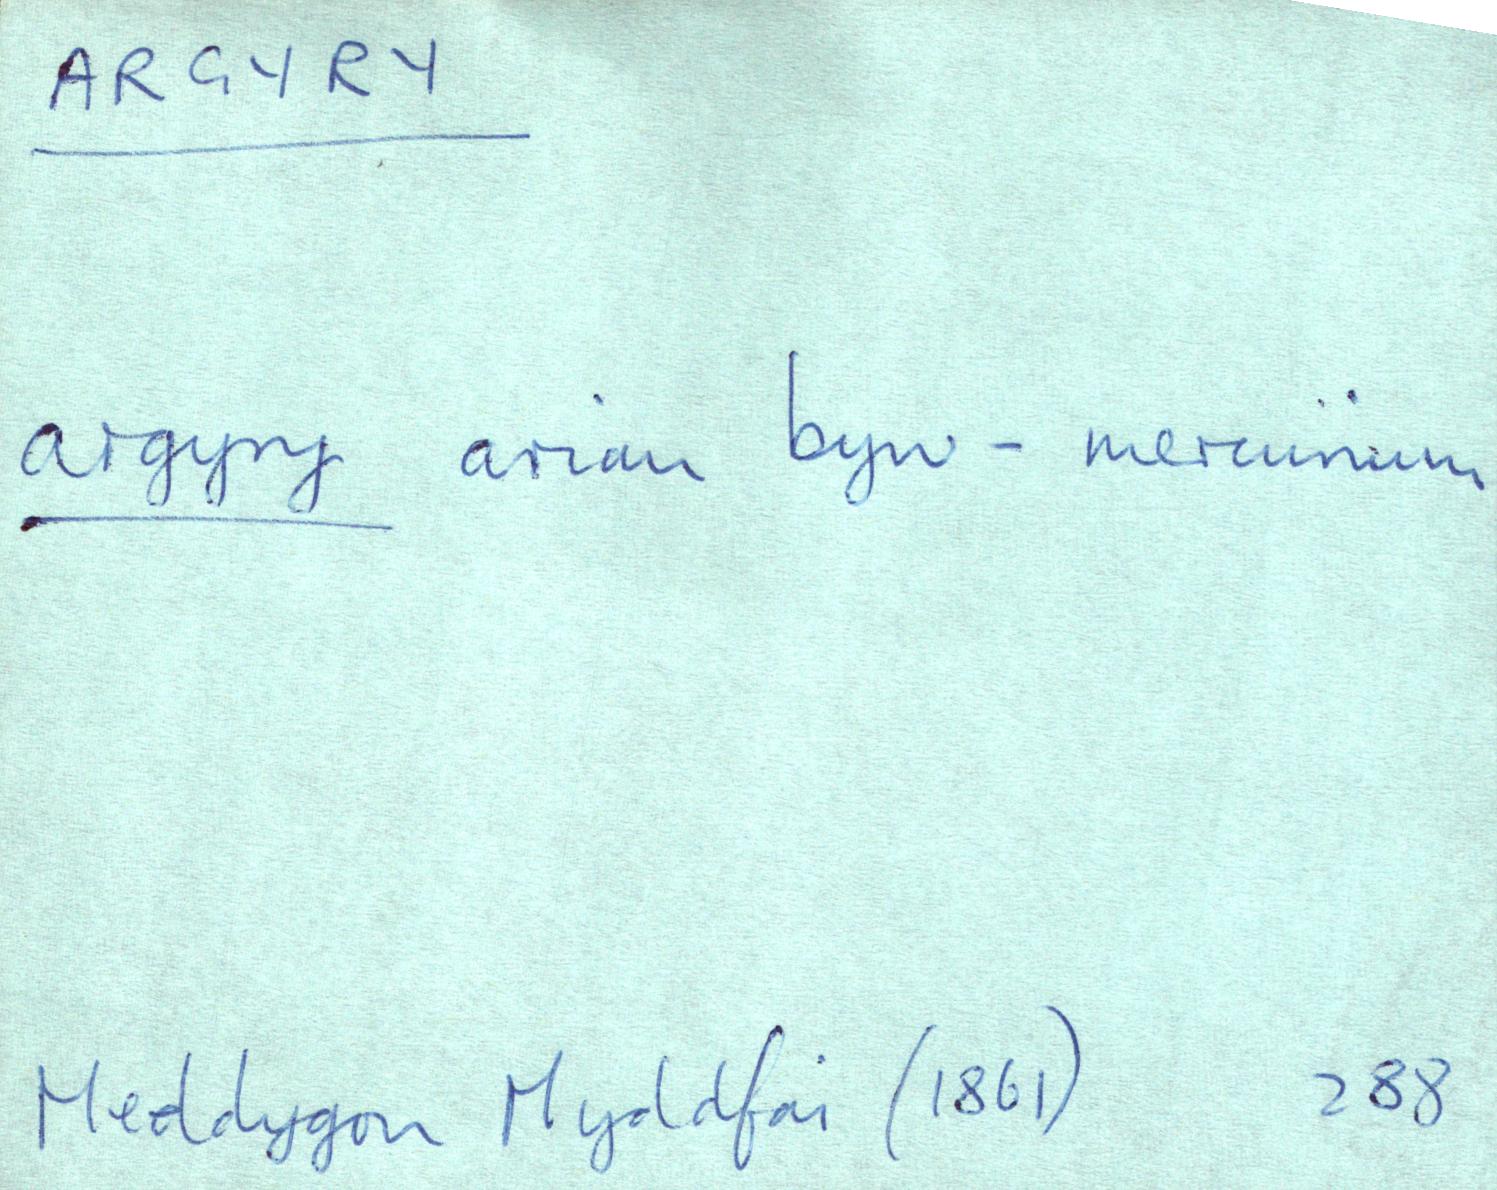 ARGYRY
argyry arian byw - mercurium
Meddygon Myddfai (1861) 288